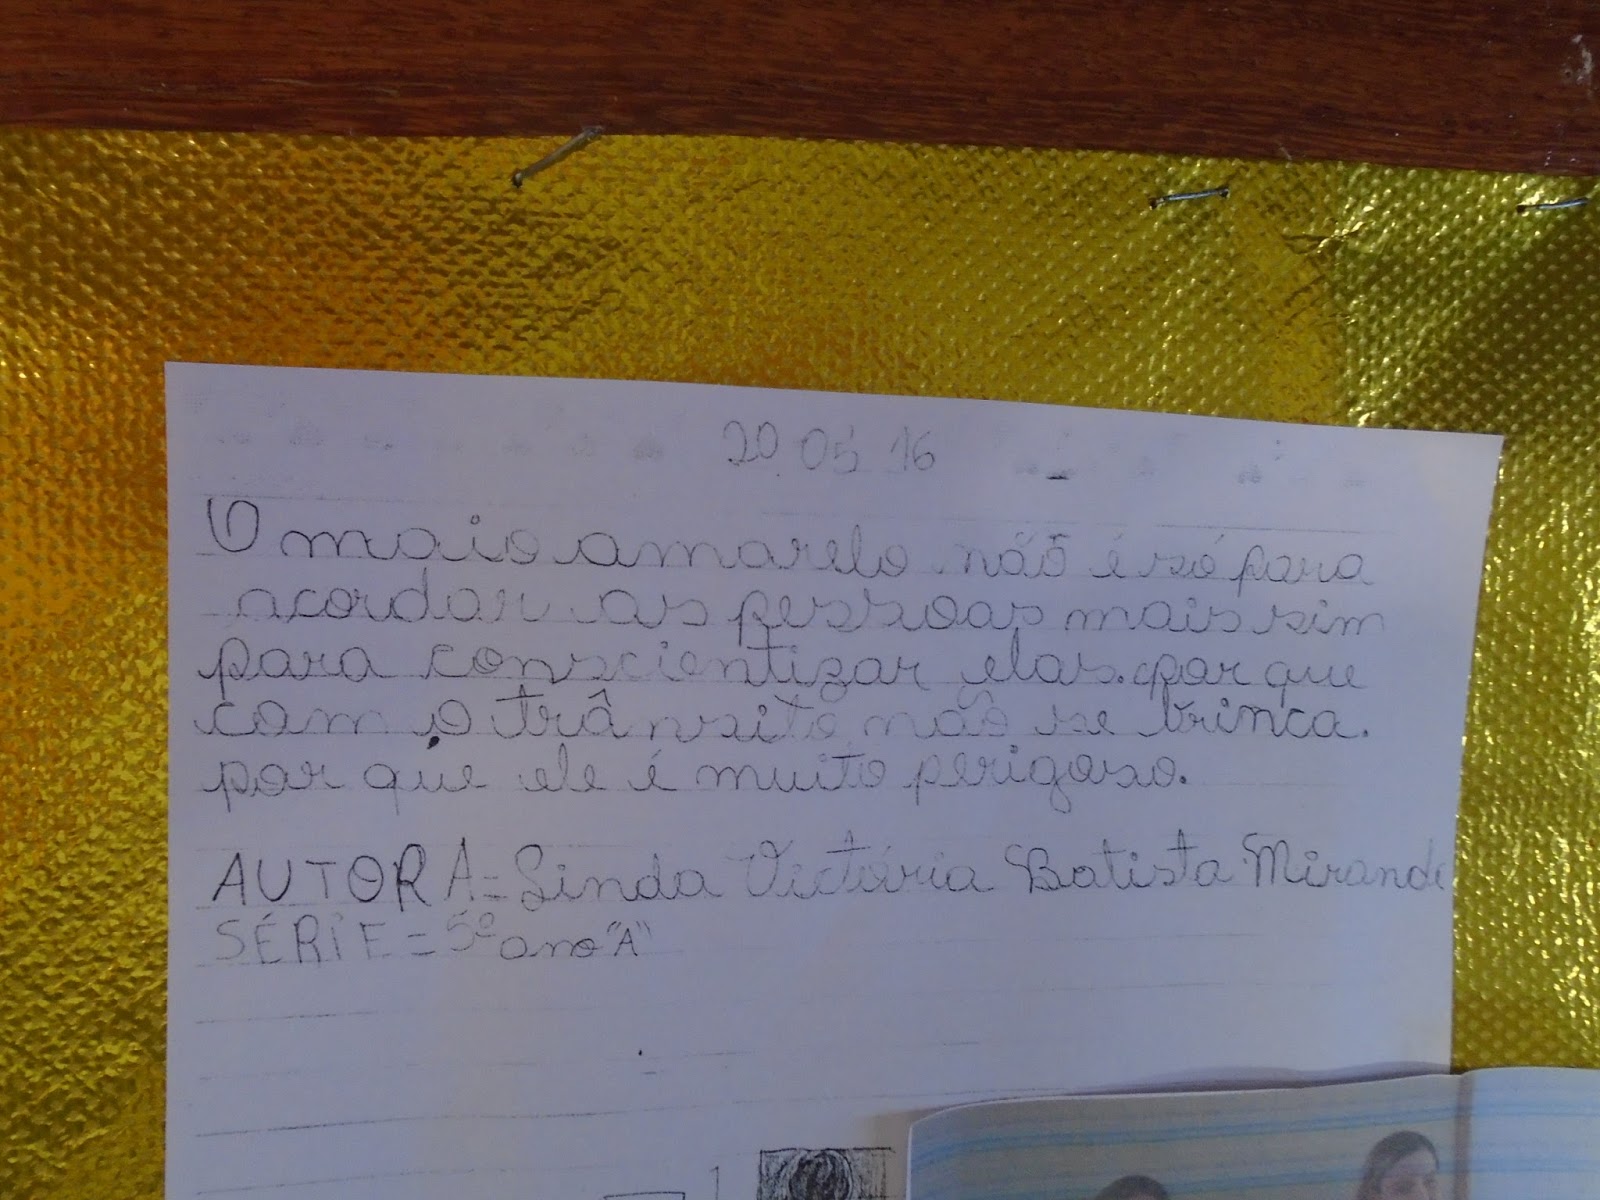 20 05 16
O maio amarelo não é só para
acordar as pessoas mais sim
para conscientizar elas. por que
com o trânsito não se brinca.
por que ele é muito perigoso.
AUTORA = Linda Victória Batista Miranda
SÉRIE = 5º ano "A"